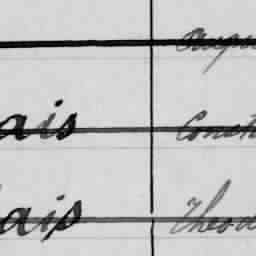 Augu
ais Const
ais Theod